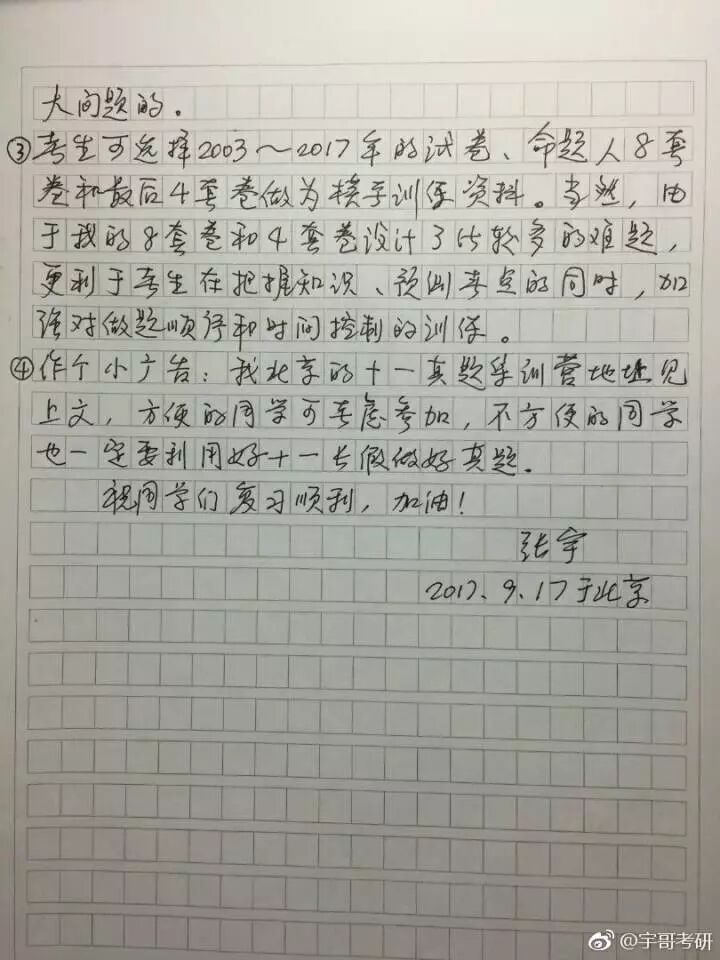 大问题的。
③考生可选择2003～2017年的试卷、命题人8套
卷和最后4套卷做为模考训练资料。当然，由
于我的8套卷和4套卷设计了比较多的难题，
更利于考生在把握知识、预测考点的同时，加
强对做题顺序和时间控制的训练。
④作个小广告：我北京的十一真题集训营地址见
上文，方便的同学可考虑参加，不方便的同学
也一定要利用好十一长假做好真题。
祝同学们复习顺利，加油！
张宇
2017.9.17于北京
@宇哥考研